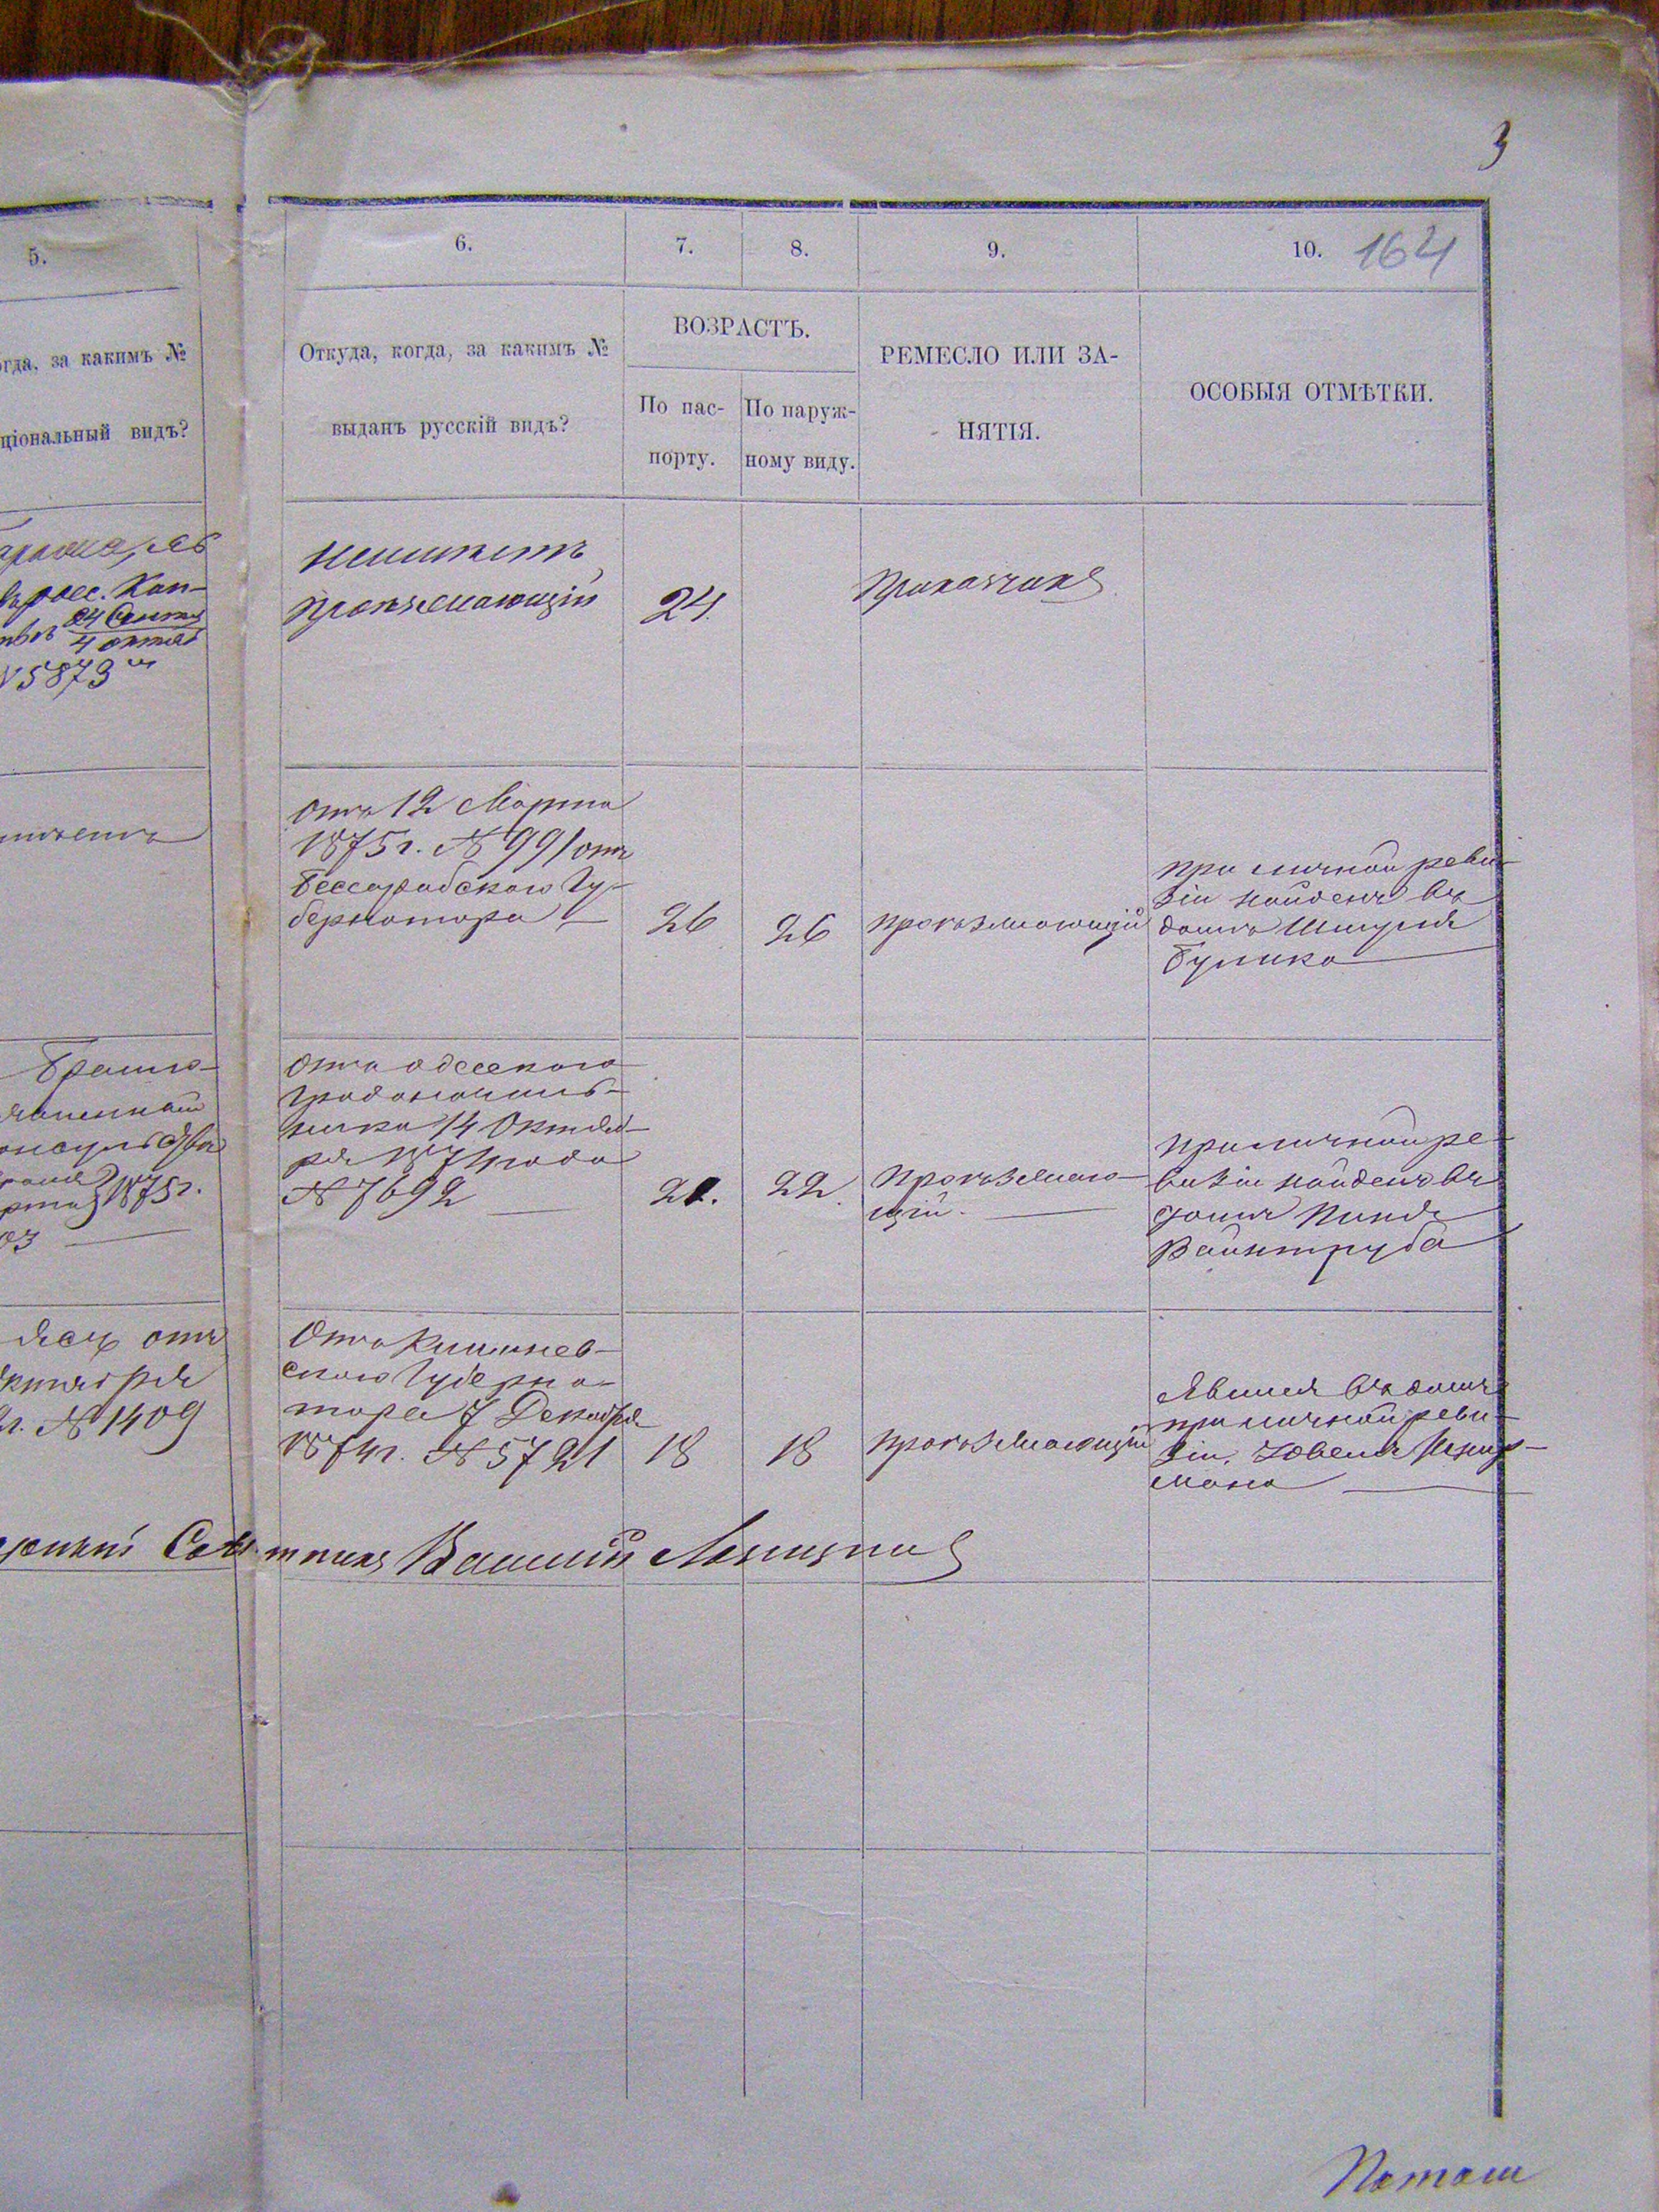 3
5.
6.
7.
8.
9.
10.
164
огда, за какимъ №
ціональный видъ?
Откуда, когда, за какимъ №
выданъ русскій видъ?
ВОЗРАСТЪ.
По пас-
порту.
По наруж-
ному виду.
РЕМЕСЛО ИЛИ ЗА-
НЯТІЯ.
ОСОБЫЯ ОТМѢТКИ.
росс. Кон-
24 Сентя
4 октяб
№5873
неимѣетъ
проѣзжающій
24.
Приказчикъ
отъ 12 Марта
1875 г. № 991 отъ
Бессарабскаго Гу-
бернатора
26
26
проѣзжающій
при личной реви-
зіи найденъ въ
домѣ Шмуля
Бу
1875 г.
03
Отъ одесскаго
Градоначаль-
ника 14 Октяб-
ря 1874 года
№ 7692
22.
проѣзжаю-
щій.
при личной ре-
визіи найденъ въ
домѣ Пиня
Вайнтруба
Яссъ отъ
октября
г. № 1409
Отъ Кишинев-
скаго Губерна-
тора 7 Декабря
1874 г. № 5721
18
18
проѣзжающій
Явился въ домѣ
при личной реви-
зіи
мана
Потош